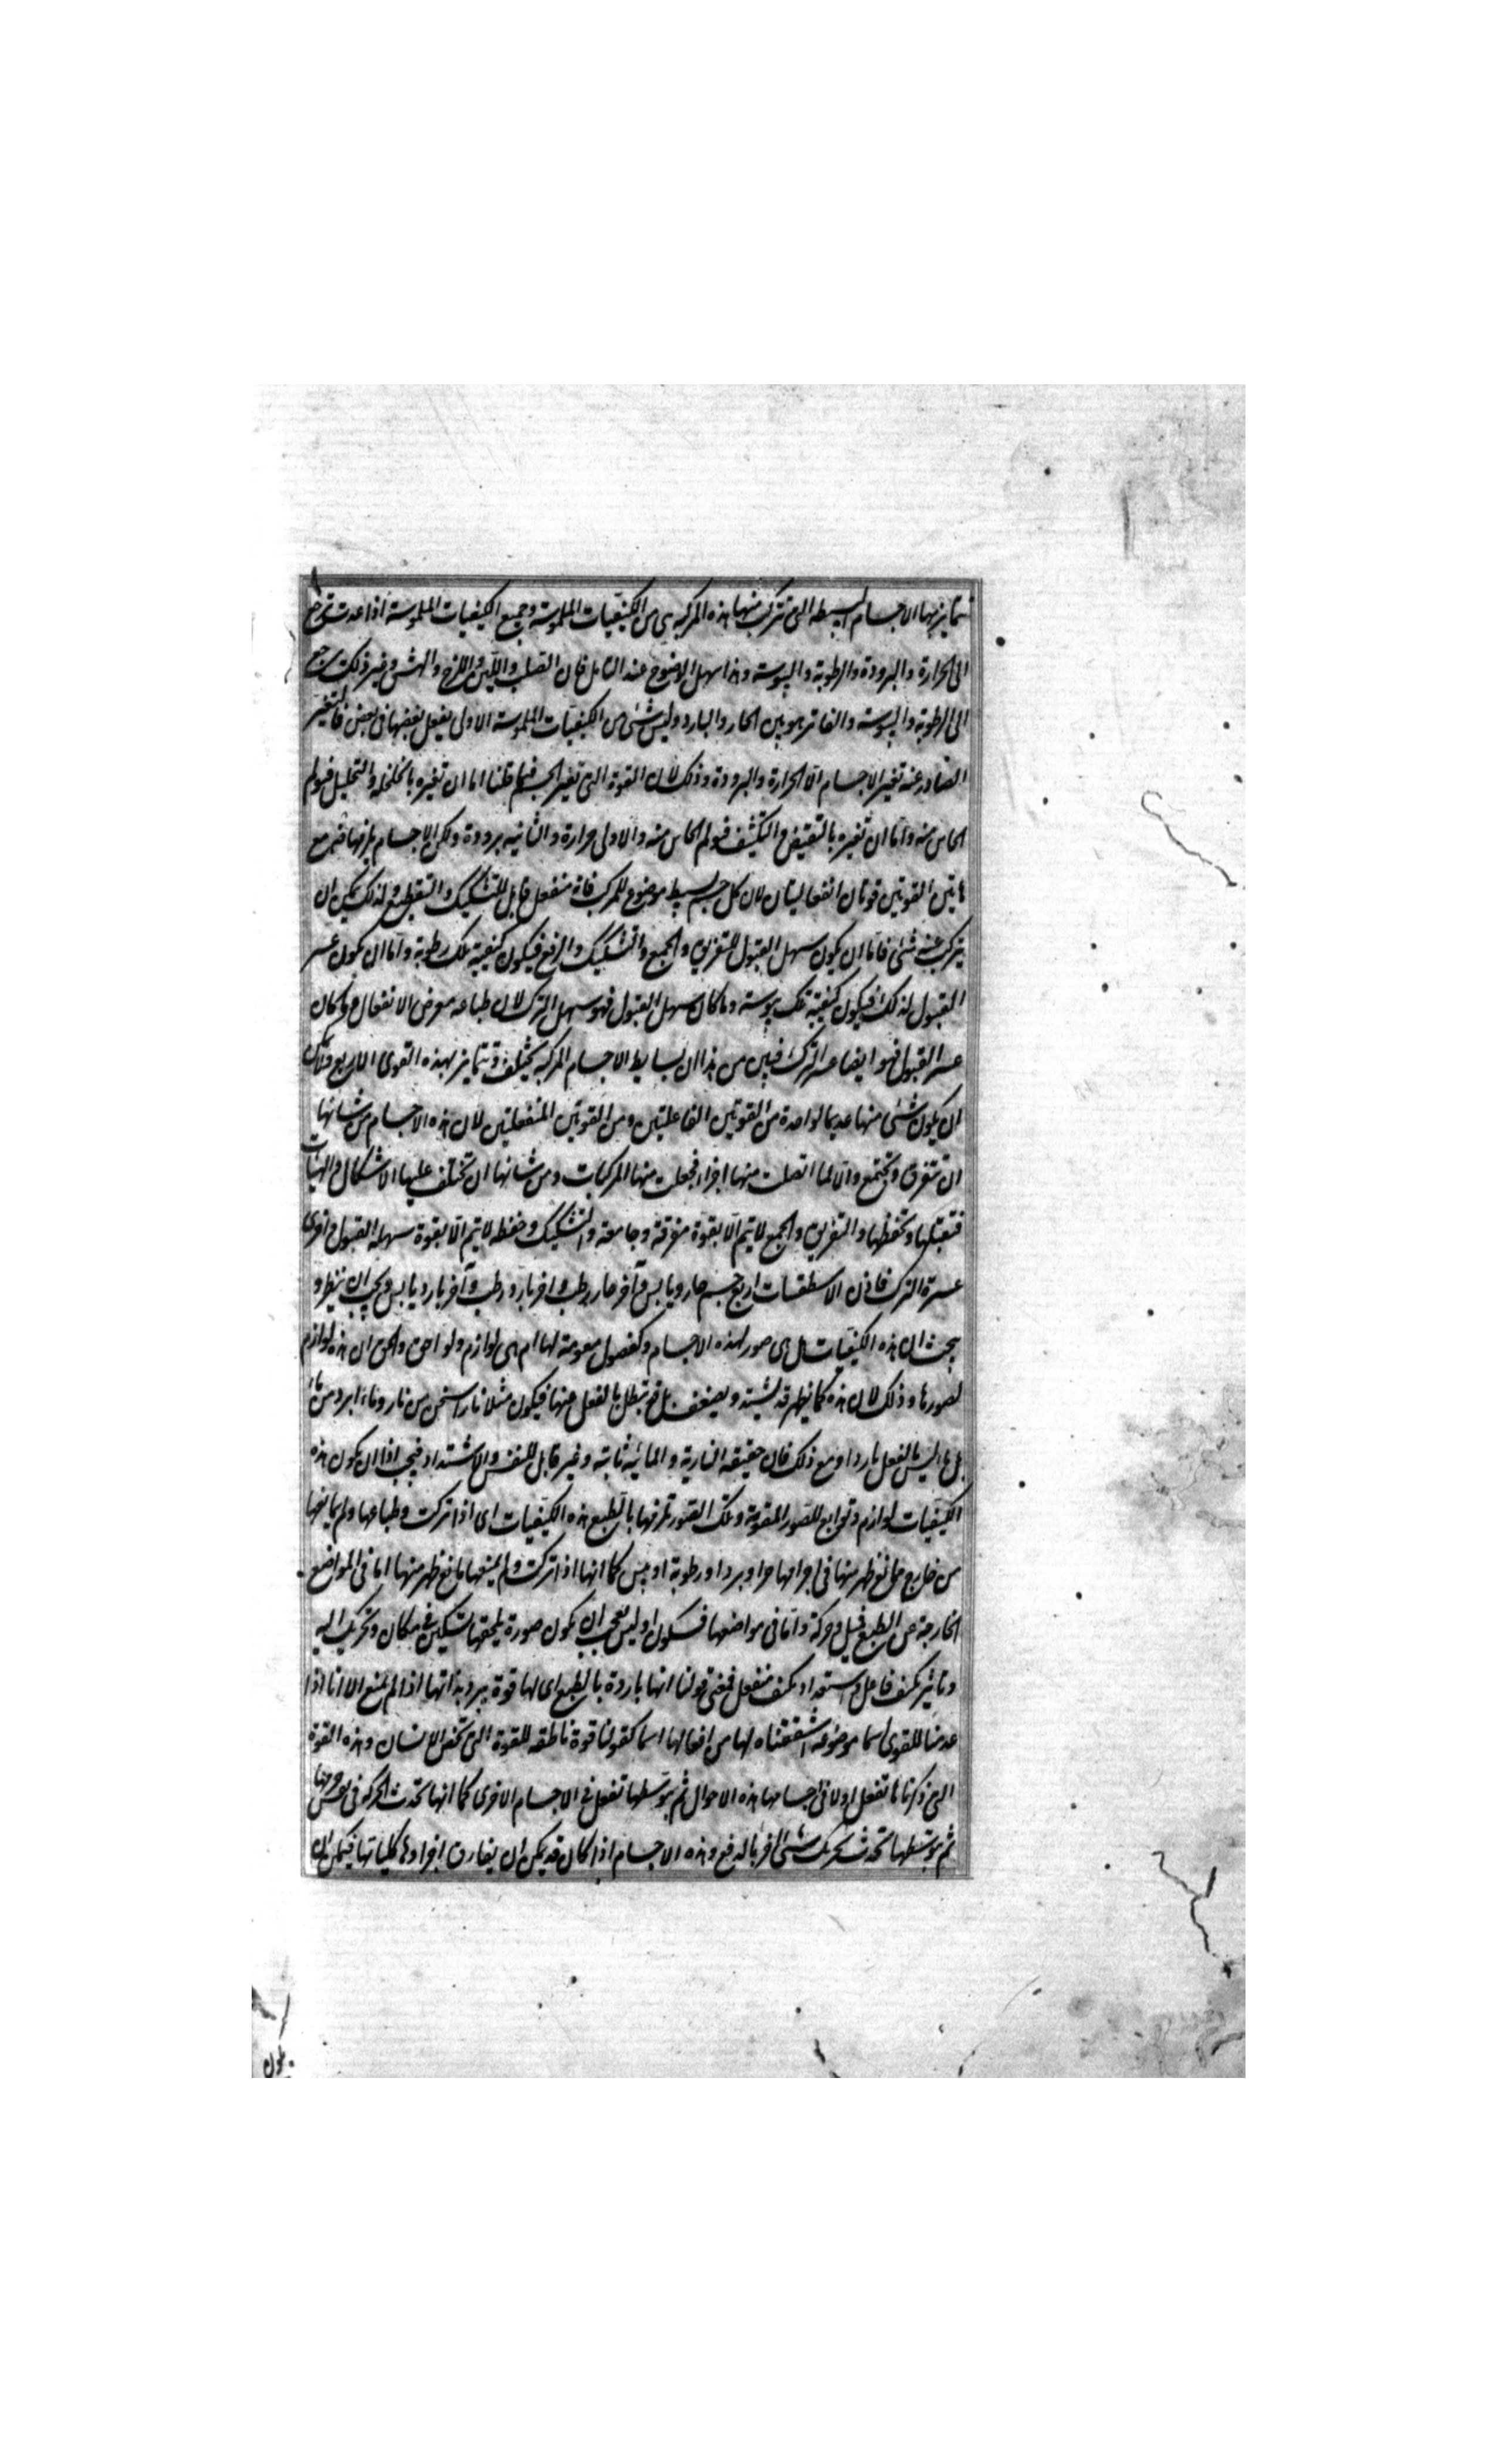 تتمايز بها الاجسام البسيطة التى تتركب منها هذه المركبة هى من الكيفيات الملموسة وجميع الكيفيات الملموسة اذا عدت ترجع
الى الحرارة والبرودة والرطوبة واليبوسة وهذا سهل الوضوح عند التامل فان الصلب واللين واللزج والهش وغير ذلك يرجع
الى الرطوبة واليبوسة والفاتر هو بين الحار والبارد وليس شئ من الكيفيات الملموسة الاولى يفعل بعضها فى بعض فالتغير
الصادر عنه تغير الاجسام الا الحرارة والبرودة وذلك لان القوة التى تغير الجسم فيما ظننا اما ان تغيره بالخلخلة والتحليل فيولم
الحاس منه واما ان تغيره بالتقبيض والتكثيف فيولم الحاس منه والاولى حرارة والثانيه برودة ولكن الاجسام يلزمها مع
هاتين القوتين قوتان انفعاليتان لان كل جسم بسيط موضوع للمركب فانه منفعل قابل للتشكيل والتقطيع ولذلك يمكن ان
يتركب عنه شئ فاما ان يكون سهل القبول للتفريق والجمع والتشكيل والدفع فيكون كيفيته تلك رطوبة واما ان يكون عسر
القبول لذلك فيكون كيفيته تلك يبوسة وما كان سهل القبول فهو سهل الترك لان طباعه معرض الانفعال وما كان
عسر القبول فهو ايضا عسر الترك فبين من هذا ان بسايط الاجسام المركبة تختلف وتتمايز بهذه القوى الاربع ولا يمكن
ان يكون شئ منها عديما لواحدة من القوتين الفاعلتين ومن القوتين المنفعلتين لان هذه الاجسام من شانها
ان تتفرق وتجتمع والا لما اتصلت منها اجزاء فجعلت منها المركبات ومن شانها ان تختلف عليها الاشكال والهيئات
فتقبلها وتحفظها والتفريق والجمع لا يتم الا بقوة مفرقة وجامعة والتشكيل وحفظه لا يتم الا بقوة سهلة القبول واخرى
عسرة الترك فاذن الاسطقسات اربع جسم حار ويابس وآخر حار رطب واخر بارد رطب وآخر بارد يابس ويجب ان ينظر و
يبحث ان هذه الكيفيات هل هى صور لهذه الاجسام وكفصول مقومة لها ام هى لوازم ولواحق والحق ان هذه لوازم
لصورها وذلك لان هذه كما يظهر قد تشتد ويضعف بل قد تبطل بالفعل عنها فيكون مثلا نار اسخن من نار وماء ابرد من ماء
بل ما ليس بالفعل باردا ومع ذلك فان حقيقة النارية والمائية ثابتة وغير قابل للنقص والاشتداد فيجب اذا ان يكون هذه
الكيفيات لوازم وتوابع للصور المقومة وتلك الصور تلزمها بالطبع هذه الكيفيات اى اذا تركت وطباعها ولم يمانعها
من خارج ممانع ظهر منها فى اجرامها حر او برد او رطوبة او يبس كما انها اذا تركت ولم يمنعها مانع ظهر منها اما فى المواضع
الخارجة عن الطبع فميل وحركة واما فى مواضعها فسكون اوليس بعجب ان يكون صورة يلحقها تسكين فى مكان وتحريك اليه
وتاثير بكيف فاعل واستعداد بكيف منفعل فمعنى قولنا انها باردة بالطبع اى لها قوة تبرد بذاتها اذا لم يمنع الا انا اذا
عدمنا للقوى اسما موضوعة اشتققناه لها من افعالها اسما كقولنا قوة ناطقة للقوة التى تخص الانسان وهذه القوة
التى ذكرناها تفعل اولا فى اجسامها هذه الاحوال ثم بتوسطها تفعل فى الاجسام الاخرى كما انها تحدث الحركة فى نفس جسمها
ثم بتوسطها تحدث تحريك شئ آخر بالدفع وهذه الاجسام اذا كان قد يمكن ان يفارق اجزاءها كلياتها فيمكن ان